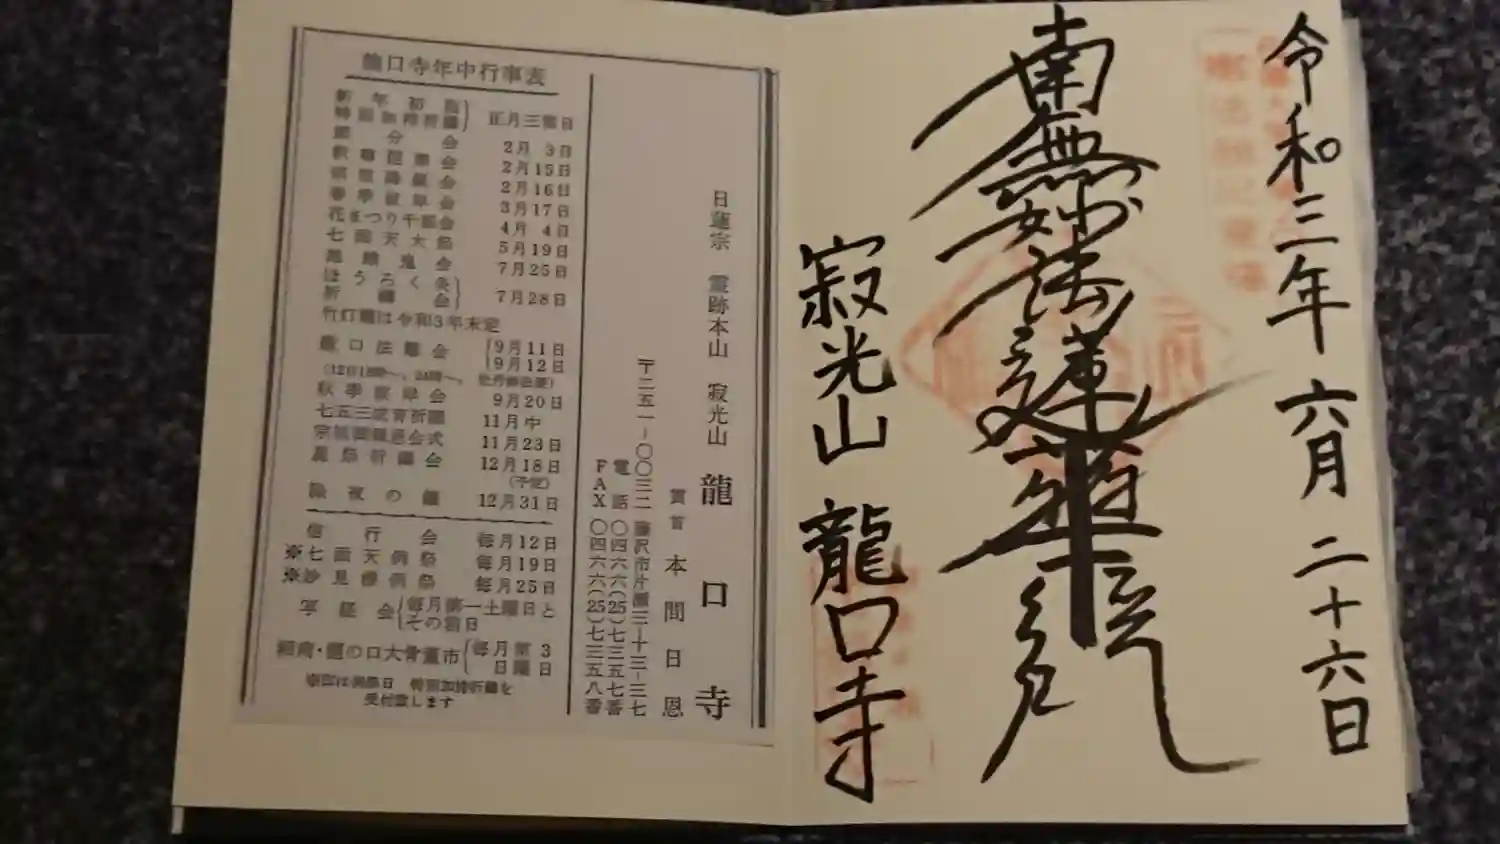 令和三年 六月 二十六日
南無妙法蓮華経
寂光山 龍口寺
龍口寺年中行事表
新年初詣
特別加持祈祷 正月三ヶ日
節分会 2月3日
釈尊涅槃会 2月15日
宗祖降誕会 2月16日
春季彼岸会 3月17日
花まつり千部会 4月4日
七面天大祭 5月19日
施餓鬼会 7月25日
ほうろく灸
祈祷会 7月28日
竹灯籠は令和3年未定
龍口法難会 9月11日
9月12日
秋季彼岸会 9月20日
七五三成育祈願 11月中
宗祖御報恩会式 11月23日
星祭祈祷会 12月18日
(予定)
除夜の鐘 12月31日
信行会 毎月12日
※七面天例祭 毎月19日
※妙見様例祭 毎月25日
写経会 毎月第一土曜日と
その前日
湘南・龍の口大骨董市 毎月第3
日曜日
※印は例祭日 特別加持祈祷を
受付致します
日蓮宗 霊跡本山 寂光山 龍口寺
貫首 本間日恩
〒二五一-〇〇三二 藤沢市片瀬三-十三-三七
電話 〇四六六(25)七三五七番
FAX 〇四六六(25)七三五八番